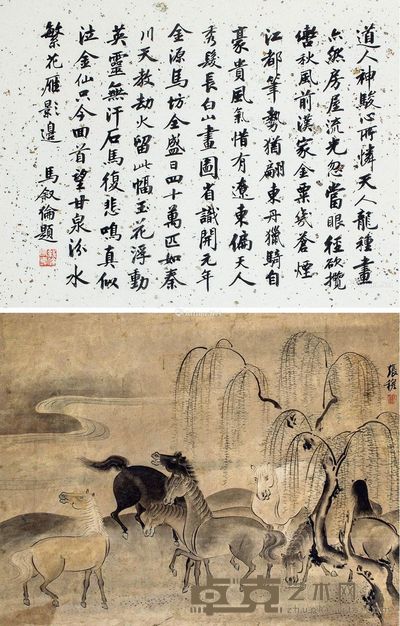 道人神駿心所憐天人龍種畫
亦然房星流光忽當眼徑欲攬
轡秋風前漢家金粟幾蒼煙
江都筆勢猶翩東丹獵騎自
豪貴風氣惜有遼東偏天人
秀髮長白山畫圖省識開元年
金源馬坊全盛日四十萬匹如秦
川天教劫火留此幅玉花浮動
英靈無汗石馬復悲鳴真似
泣金仙只今回首望甘泉汾水
繁花雁影邊 馬叙倫題
張穆
卓克艺术网